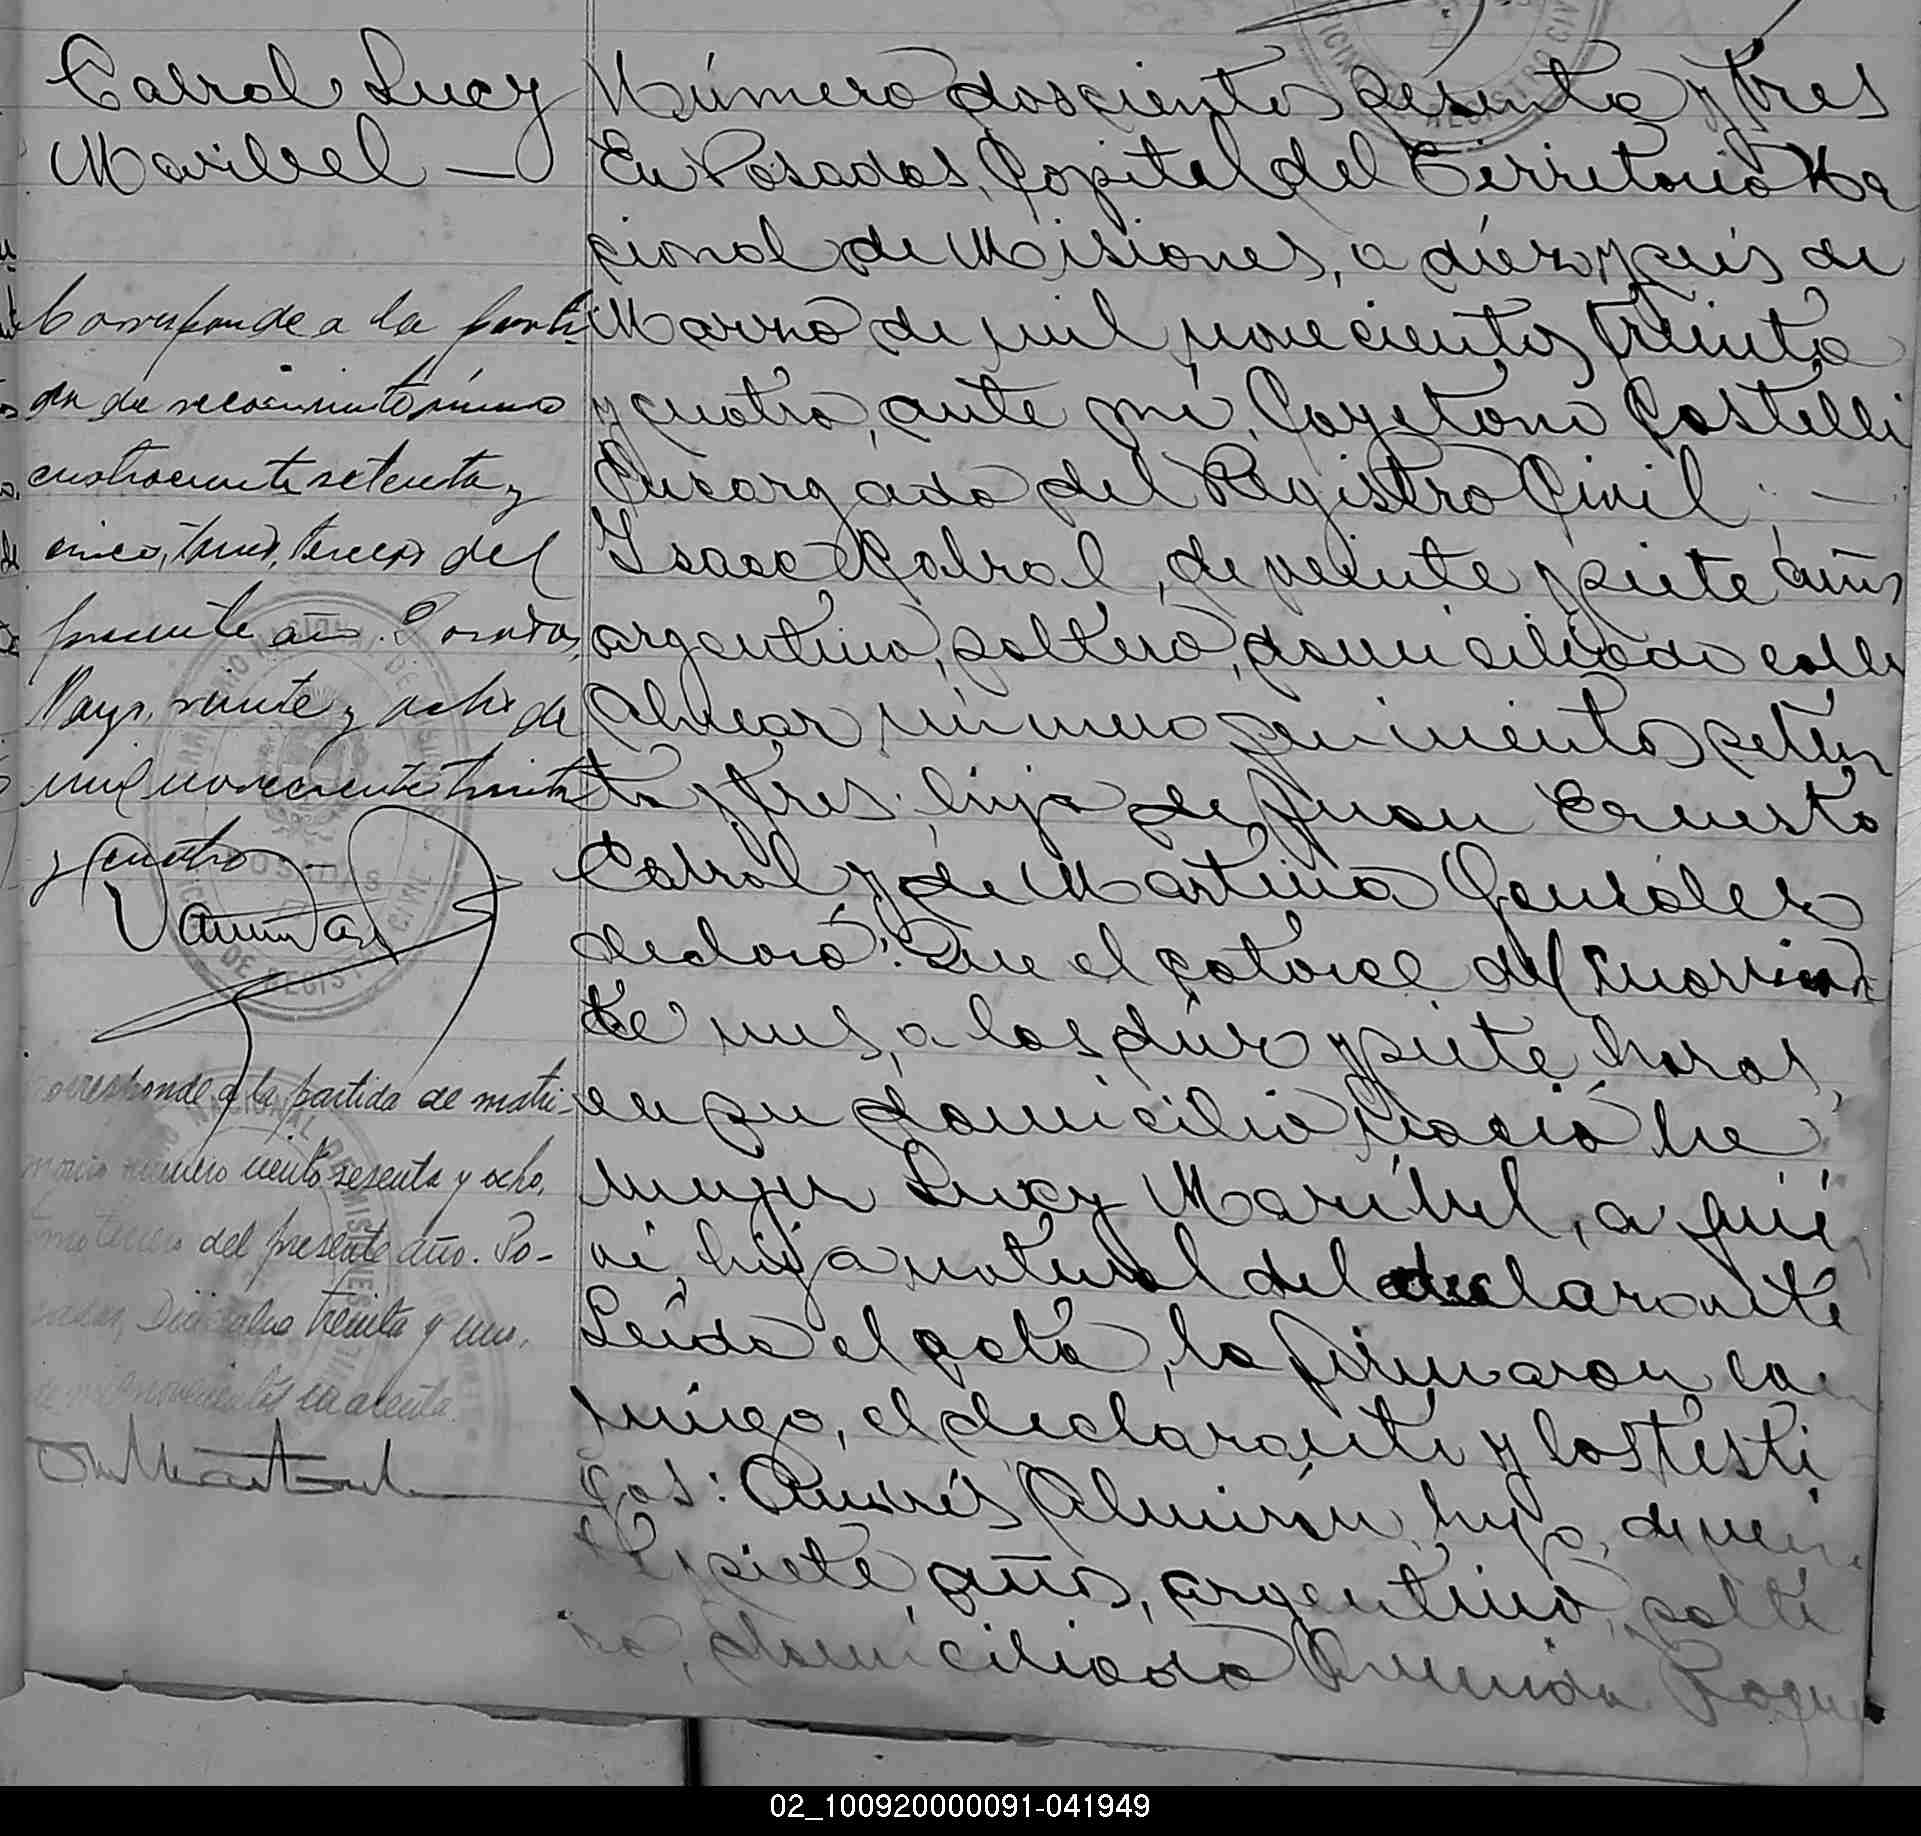 Cabral Lucy
Maribel —
Corresponde a la parti-
da de reconocimiento número
cuatrociento setenta y
cinco, tomo, tercero del
presente año. Posadas,
Mayo, veinte y ocho de
mil novecientos treinta
y cuatro.-
Corresponde a la partida de matri-
monio número ciento sesenta y ocho,
tomo tercero del presente año. Po-
sadas, Diciembre treinta y uno,
de mil novecientos cuarenta.
Número doscientos sesenta y tres
En Posadas, Capital del Territorio Na
cional de Misiones, a diez y seis de
Marzo de mil novecientos treinta
y cuatro, ante mi, Cayetano Castelli
Encargado del Registro Civil. —
Isaac Cabral, de veinte y siete años
argentino, soltero, domiciliado calle
Alvear número seiscientos seten
ta y tres, hijo de Juan Ernesto
Cabral y de Martina Gonzáles
declaró: Que el catorce del corrien
te mes, a las diez y siete horas,
en su domicilio nació la
mujer Lucy Maribel, a quié
ví, hija natural del declarante
Leída el acta, la firmaron con
migo, el declarante y los testi
gos: Andrés Almirón, hijo, de vein
te y siete años, argentino, solte
ro, domiciliado Avenida Roque
OFICINA DE REGISTRO CIVIL
POSADAS
02_100920000091-041949